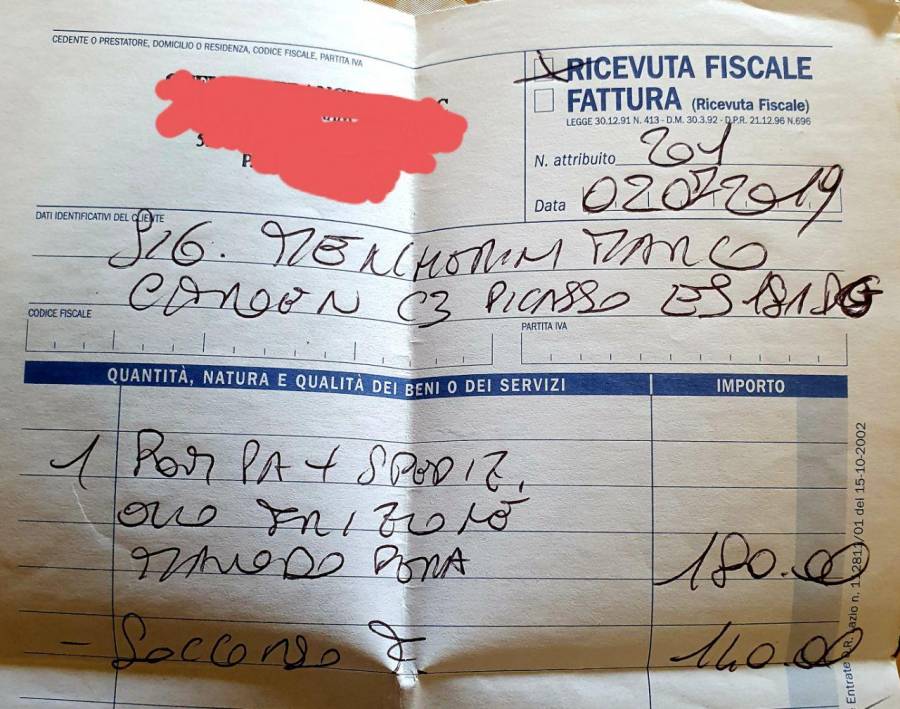 CEDENTE O PRESTATORE, DOMICILIO O RESIDENZA, CODICE FISCALE, PARTITA IVA
RICEVUTA FISCALE
FATTURA (Ricevuta Fiscale)
LEGGE 30.12.91 N. 413 - D.M. 30.3.92 - D.P.R. 21.12.96 N.696
N. attribuito 201
Data 02072019
DATI IDENTIFICATIVI DEL CLIENTE
SIG. MARCO
C3 PICASSO
CODICE FISCALE
PARTITA IVA
QUANTITÀ, NATURA E QUALITÀ DEI BENI O DEI SERVIZI
IMPORTO
1 POMPA + SPEDIZ.
OLIO
MANODOPERA 180.00
- SOCCORSO 140.00
del 15-10-2002